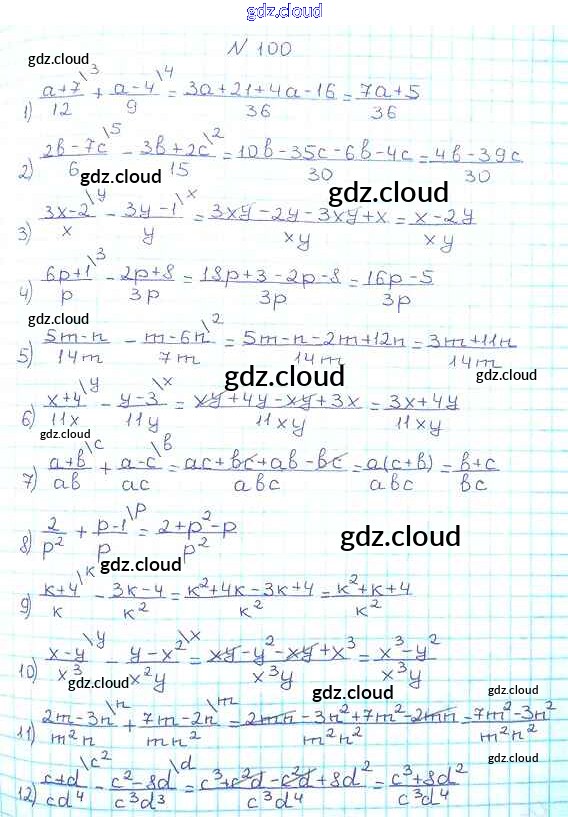 gdz.cloud
N 100
gdz.cloud
1) (a+7)/12 \3 + (a-4)/9 \4 = (3a+21+4a-16)/36 = (7a+5)/36
gdz.cloud
2) (2b-7c)/6 \5 - (3b+2c)/15 \2 = (10b-35c-6b-4c)/30 = (4b-39c)/30
gdz.cloud gdz.cloud
3) (3x-2)/x \y - (3y-1)/y \x = (3xy-2y-3xy+x)/xy = (x-2y)/xy
gdz.cloud
4) (6p+1)/p \3 - (2p+8)/3p = (18p+3-2p-8)/3p = (16p-5)/3p
gdz.cloud gdz.cloud
5) (5m-n)/14m - (m-6n)/7m \2 = (5m-n-2m+12n)/14m = (3m+11n)/14m
gdz.cloud gdz.cloud
6) (x+4)/11x \y - (y-3)/11y \x = (xy+4y-xy+3x)/11xy = (3x+4y)/11xy
gdz.cloud
7) (a+b)/ab \c + (a-c)/ac \b = (ac+bc+ab-bc)/abc = a(c+b)/abc = (b+c)/bc
8) 2/p² + (p-1)/p \p = (2+p²-p)/p²
gdz.cloud
gdz.cloud
9) (к+4)/к \к - (3к-4)/к² = (к²+4к-3к+4)/к² = (к²+к+4)/к²
gdz.cloud
10) (x-y)/x³ \y - (y-x²)/x²y \x = (xy-y²-xy+x³)/x³y = (x³-y²)/x³y
gdz.cloud gdz.cloud gdz.cloud
11) (2m-3n)/m²n \n + (7m-2n)/mn² \m = (2mn-3n²+7m²-2mn)/m²n² = (7m²-3n²)/m²n²
gdz.cloud gdz.cloud gdz.cloud
12) (c+d)/cd⁴ \c² - (c²-8d)/c³d³ \d = (c³+c²d-c²d+8d²)/c³d⁴ = (c³+8d²)/c³d⁴